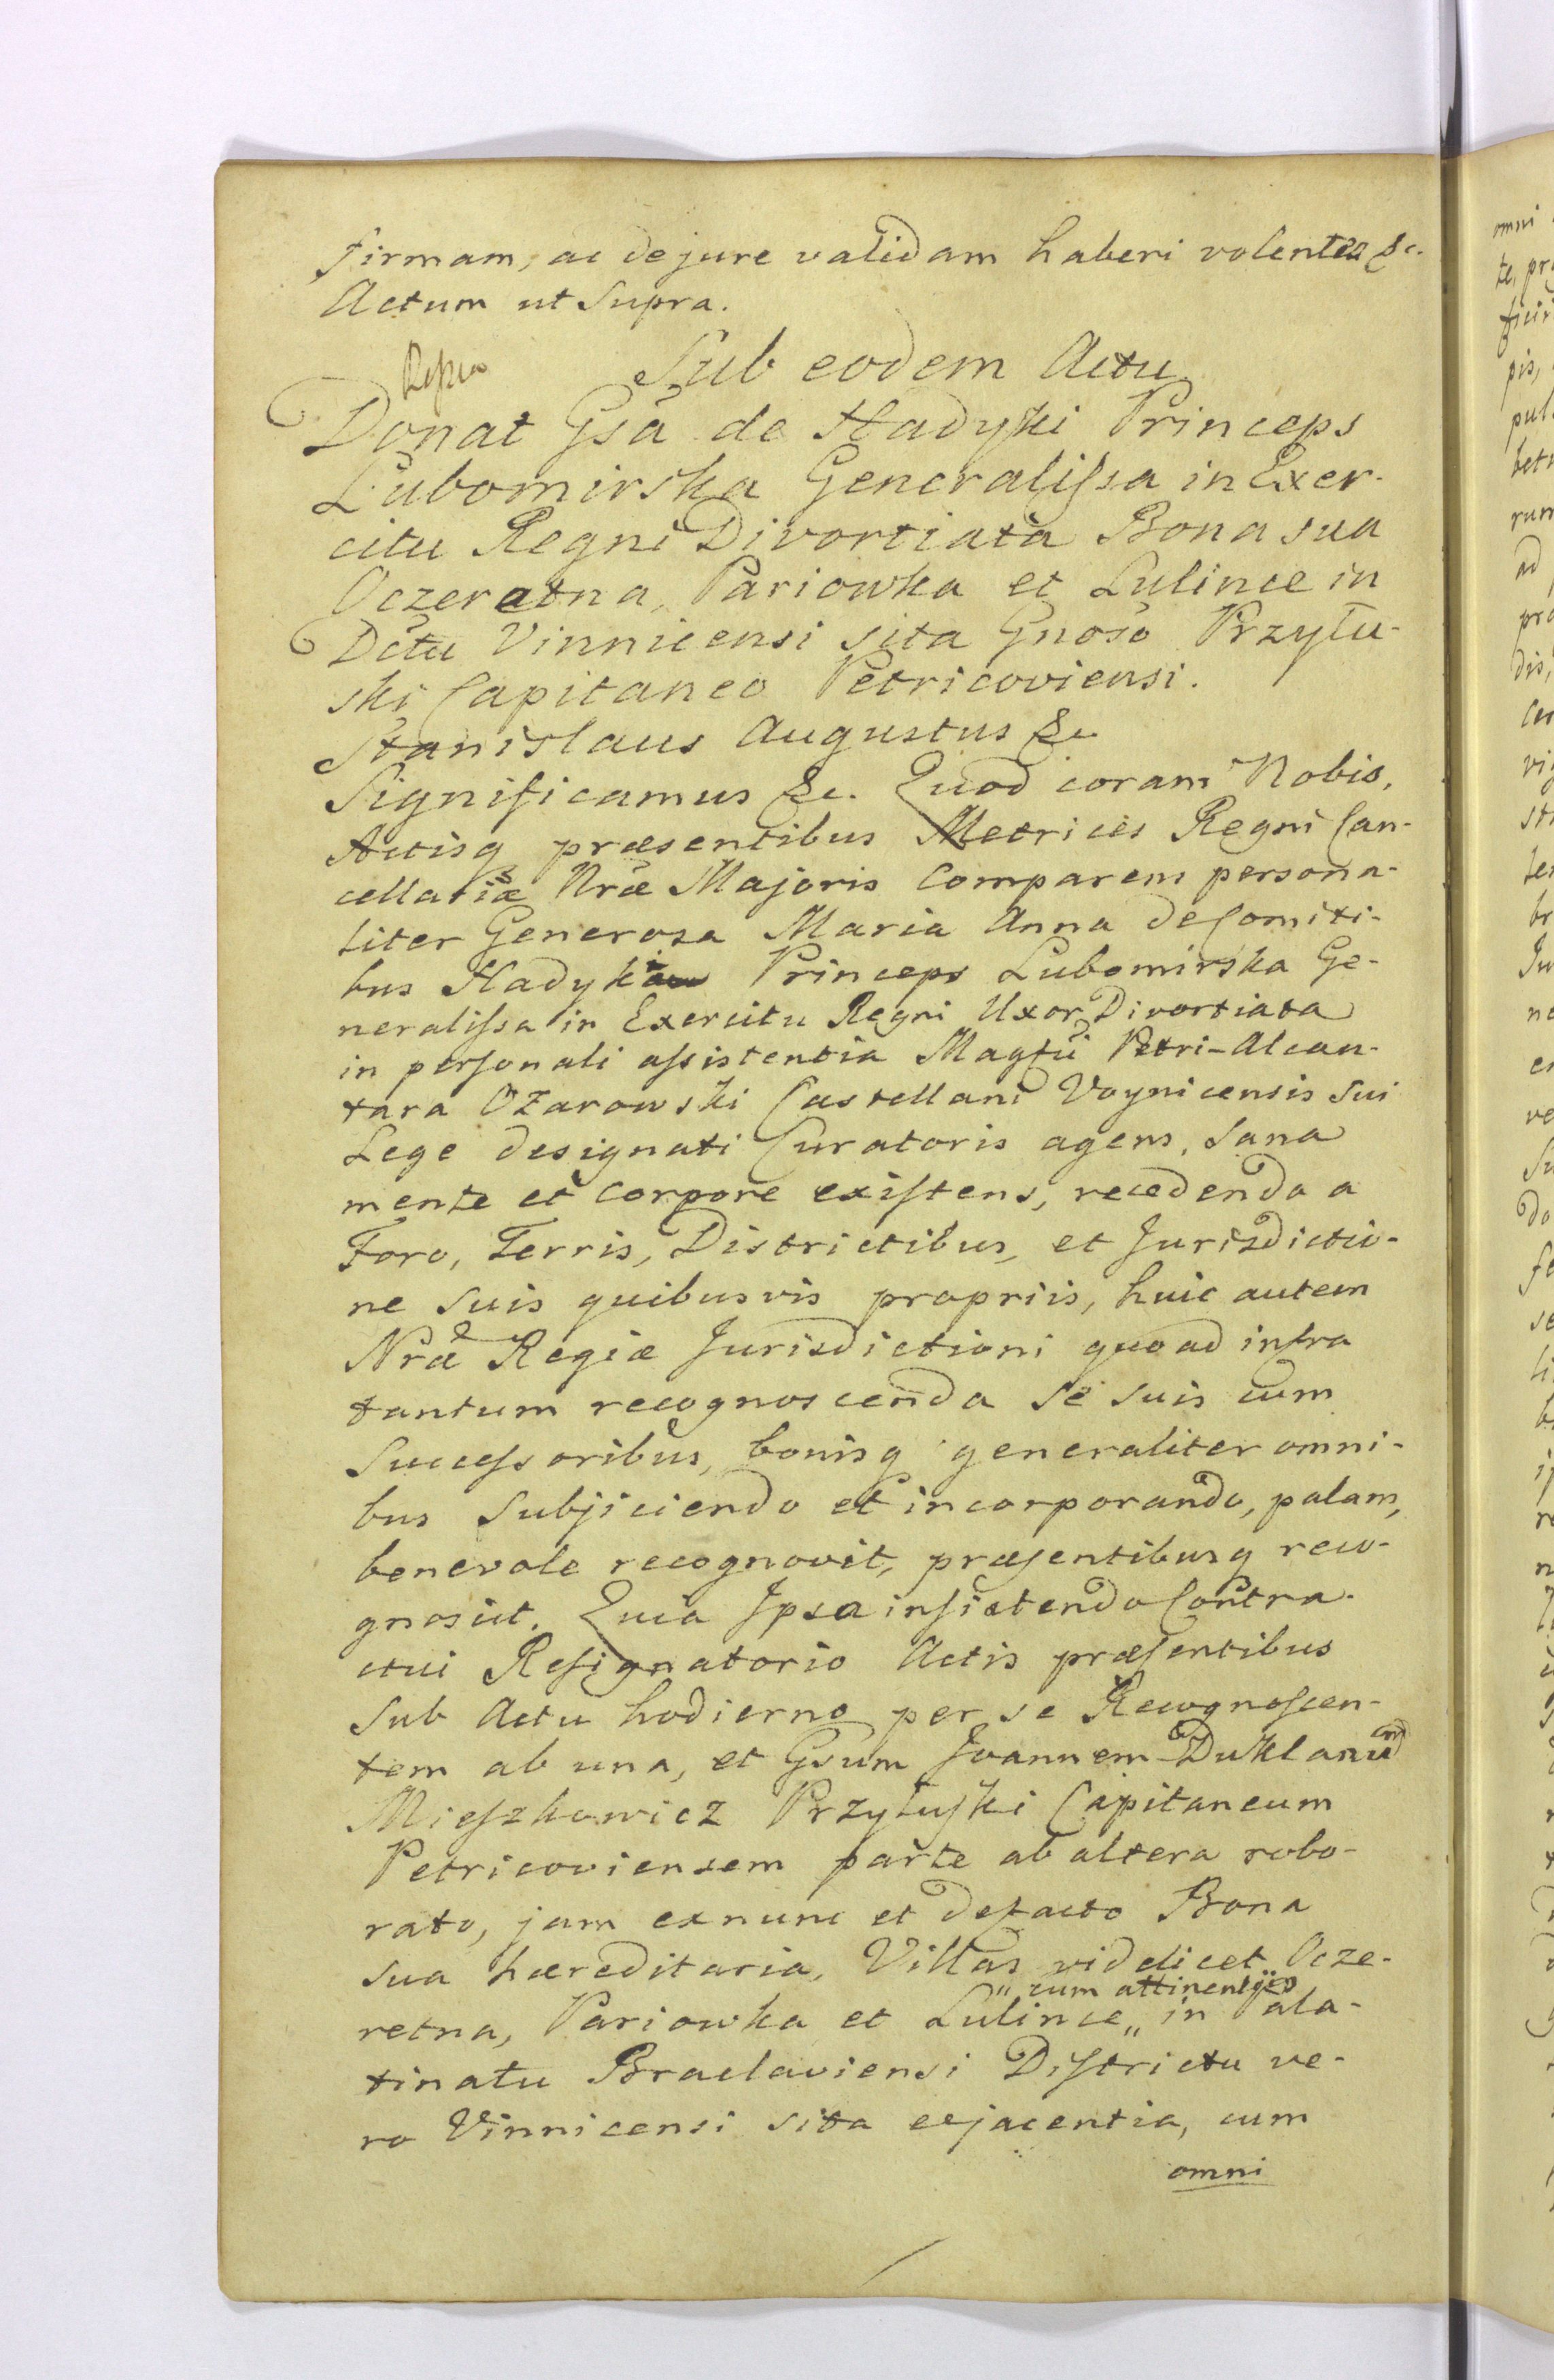 firmam, ac de jure validam haberi volentes &c.
Actum ut Supra.
Sub eodem Actu
Donat Gsa de Hadyki Princeps
Lubomirska Generalissa in Exer-
citu Regni Divortiata Bona sua
Oczeratna, Pariowka et Lulince in
Dctu Vinnicensi sita Gnoso Przyłu-
ski Capitaneo Petricoviensi.
Stanislaus Augustus &c.
Significamus &c. Quod coram Nobis,
Actisq præsentibus Metrices Regni Can-
cellariæ Nræ Majoris Comparens persona-
liter Generosa Maria Anna de Comiti-
bus Hadyki Princeps Lubomirska Ge-
neralissa in Exercitu Regni Uxor Divortiata
in personali assistentia Magfci Petri-Alcan-
tara Ożarowski Castellani Voynicensis Sui
Lege designati Curatoris agens, Sana
mente et Corpore existens, recedendo a
Foro, Terris, Districtibus, et Jurisdictio-
ne Suis quibusvis propriis, huic autem
Nræ Regiæ Jurisdictioni quoad infra
tantum recognoscenda se suis cum
Successoribus, bonisq generaliter omni-
bus Subjiciendo et incorporando, palam,
benevole recognovit, præsentibusq reco-
gnoscit. Quia Ipsa insistendo Contra-
ctui Resignatorio Actis præsentibus
Sub Actu hodierno per se Recognoscen-
tem ab una, et Gsum Joannem Duklanum
Mieszkowicz Przyłuski Capitaneum
Petricoviensem parte ab altera robo-
rato, jam exnunc et defacto Bona
sua hæreditaria, Villas videlicet Ocze-
" cum attinentijs
retna, Pariowka et Lulince " in Pala-
tinatu Braclaviensi Districtu ve-
ro Vinnicensi sita et jacentia, cum
omni